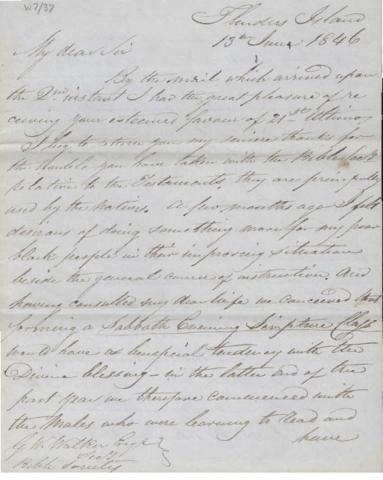 W7/37
Flinders Island
13th June 1846
My dear Sir
By the mail which arrived upon
the 2nd instant I had the great pleasure of re
ceiving your esteemed favour of 21st Ultimo
I beg to return you my sincere thanks for
the trouble you have taken with the Bible Socy
relative to the Testaments, they are principally
used by the Natives. A few months ago I felt
desirous of doing something more for my poor
black people in their improving situation
beside the general course of instruction, and
having consulted my dear wife we conceived that
forming a Sabbath Evening Scripture Class
would have a beneficial tendency with the
Divine blessing - in the latter end of the
past year we therefore commenced with
the Males who were learning to read and
have
G W Walker Esqr
Secy
Bible Society